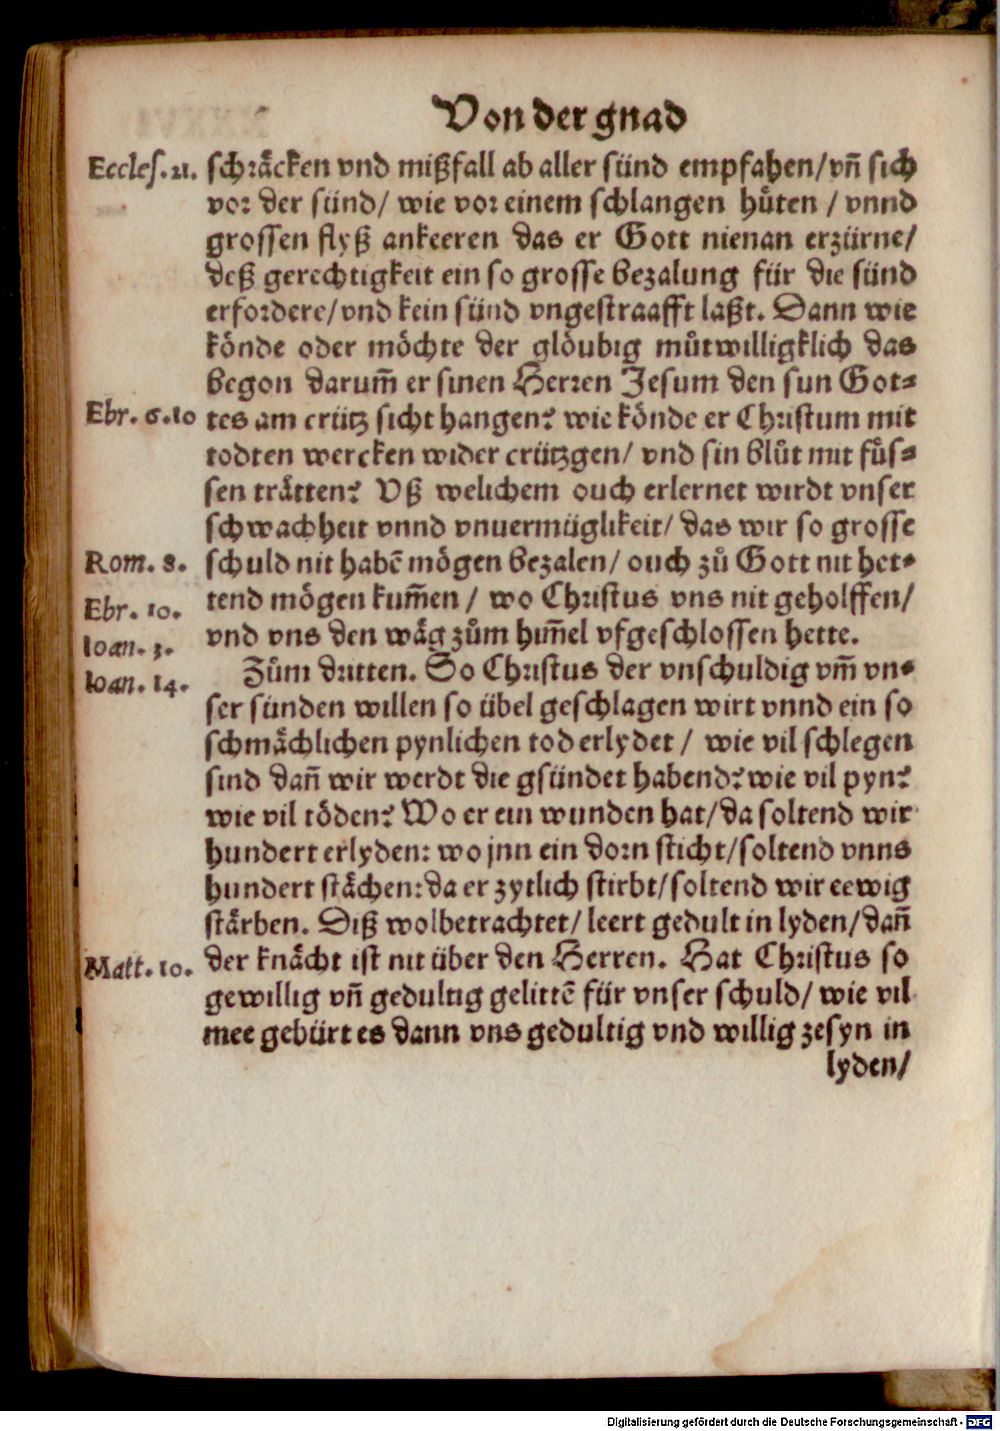 Von der gnad
Eccles. 21. schräcken vnd mißfall ab aller sünd empfahen/ vn̄ sich
vor der sünd/ wie vor einem schlangen hůten / vnnd
grossen flyß ankeeren das er Gott nienan erzürne/
deß gerechtigkeit ein so grosse bezalung für die sünd
erfordere/ vnd kein sünd vngestraafft laßt. Dann wie
könde oder möchte der glöubig můtwilligklich das
begon darum̄ er sinen Herren Jesum den sun Got⸗
Ebr. 6. 10 tes am crütz sicht hangen? wie könde er Christum mit
todten wercken wider crützgen/ vnd sin blůt mit fůs⸗
sen trätten? Vß welichem ouch erlernet wirdt vnser
schwachheit vnnd vnuermüglikeit/ das wir so grosse
Rom. 8. schuld nit habē mögen bezalen/ ouch zů Gott nit het⸗
Ebr. 10. tend mögen kum̄en / wo Christus vns nit geholffen/
Ioan. 3. vnd vns den wäg zům him̄el vfgeschlossen hette.
Ioan. 14. Zům dritten. So Christus der vnschuldig vm̄ vn⸗
ser sünden willen so übel geschlagen wirt vnnd ein so
schmächlichen pynlichen tod erlydet / wie vil schlegen
sind dan̄ wir werdt die gsündet habend? wie vil pyn?
wie vil töden? Wo er ein wunden hat/ da soltend wir
hundert erlyden: wo jnn ein dorn sticht/ soltend vnns
hundert stächen: da er zytlich stirbt/ soltend wir eewig
stärben. Diß wolbetrachtet/ leert gedult in lyden/ dan̄
Matt. 10. der knächt ist nit über den Herren. Hat Christus so
gewillig vn̄ gedultig gelittē für vnser schuld/ wie vil
mee gebürt es dann vns gedultig vnd willig zesyn in
lyden/
Digitalisierung gefördert durch die Deutsche Forschungsgemeinschaft - DFG